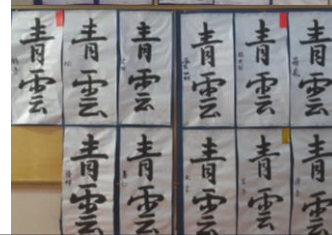 青雲
青雲
青雲
青雲
青雲
青雲
青雲
青雲
青雲
青雲
青雲